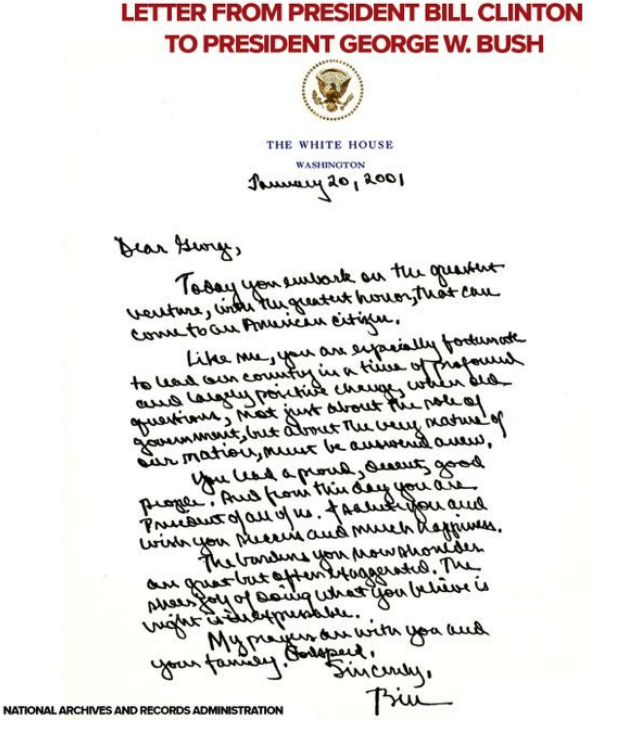 LETTER FROM PRESIDENT BILL CLINTON
TO PRESIDENT GEORGE W. BUSH
THE WHITE HOUSE
WASHINGTON
January 20, 2001
Dear George,
Today you embark on the greatest
venture, with the greatest honor, that can
come to an American citizen.
Like me, you are especially fortunate
to lead our country in a time of profound
and largely positive change, when old
questions, not just about the role of
government, but about the very nature of
our nation, must be answered anew.
You lead a proud, decent, good
people. And from this day you are
President of all of us. I salute you and
wish you success and much happiness.
The burdens you now shoulder
are great but often exaggerated. The
sheer joy of doing what you believe is
right is inexpressible.
My prayers are with you and
your family. Godspeed.
Sincerely,
Bill
NATIONAL ARCHIVES AND RECORDS ADMINISTRATION